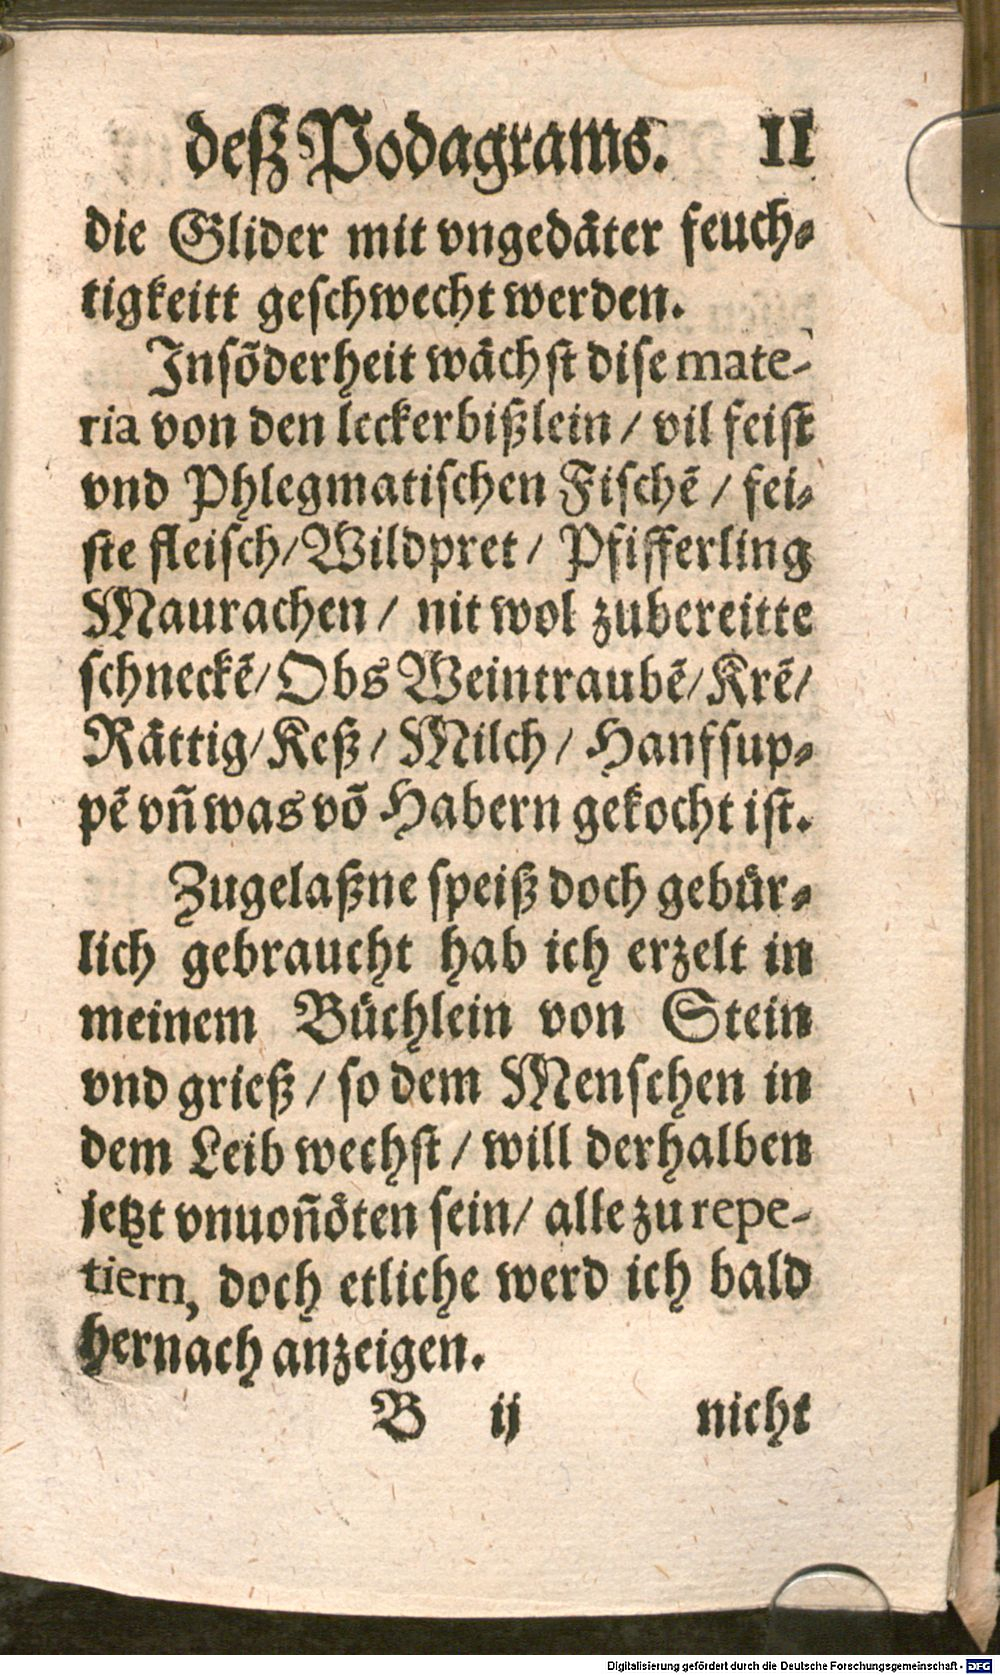 deß Podagrams. 11
die Glider mit vngedäter feuch-
tigkeitt geschwecht werden.
Insõderheit wächst dise mate-
ria von den leckerbißlein / vil feist
vnd Phlegmatischen Fischẽ / fei-
ste fleisch / Wildpret / Pfifferling
Maurachen / nit wol zubereitte
schneckẽ / Obs Weintraubẽ / Krẽ /
Rättig / Keß / Milch / Hanfsup-
pẽ vñ was võ Habern gekocht ist.
Zugelaßne speiß doch gebür-
lich gebraucht hab ich erzelt in
meinem Büchlein von Stein
vnd grieß / so dem Menschen in
dem Leib wechst / will derhalben
jetzt vnuoñöten sein / alle zu repe-
tiern, doch etliche werd ich bald
hernach anzeigen.
B ij nicht
Digitalisierung gefördert durch die Deutsche Forschungsgemeinschaft - DFG